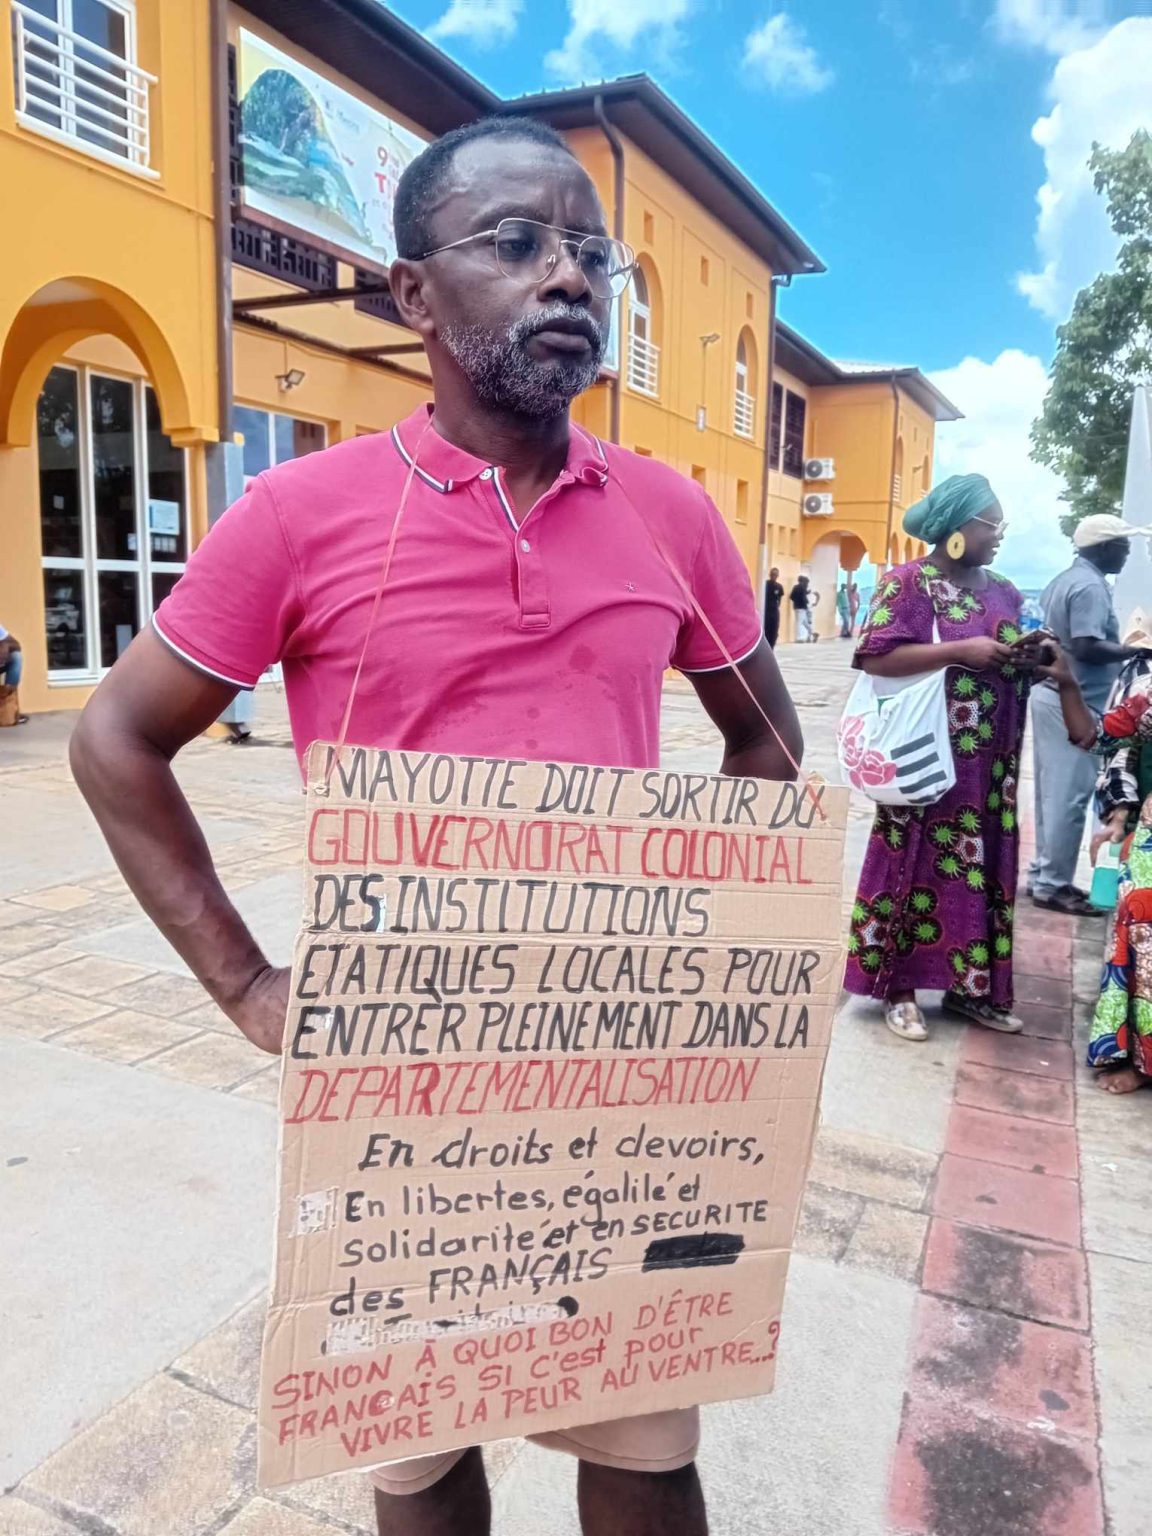 MAYOTTE DOIT SORTIR DU
GOUVERNORAT COLONIAL
DES INSTITUTIONS
ETATIQUES LOCALES POUR
ENTRER PLEINEMENT DANS LA
DEPARTEMENTALISATION
En droits et devoirs,
En libertes, égalilé et
solidarite et en SECURITE
des FRANÇAIS
SINON À QUOI BON D'ÊTRE
FRANCAIS SI C'est pour
VIVRE LA PEUR AU VENTRE...?
9